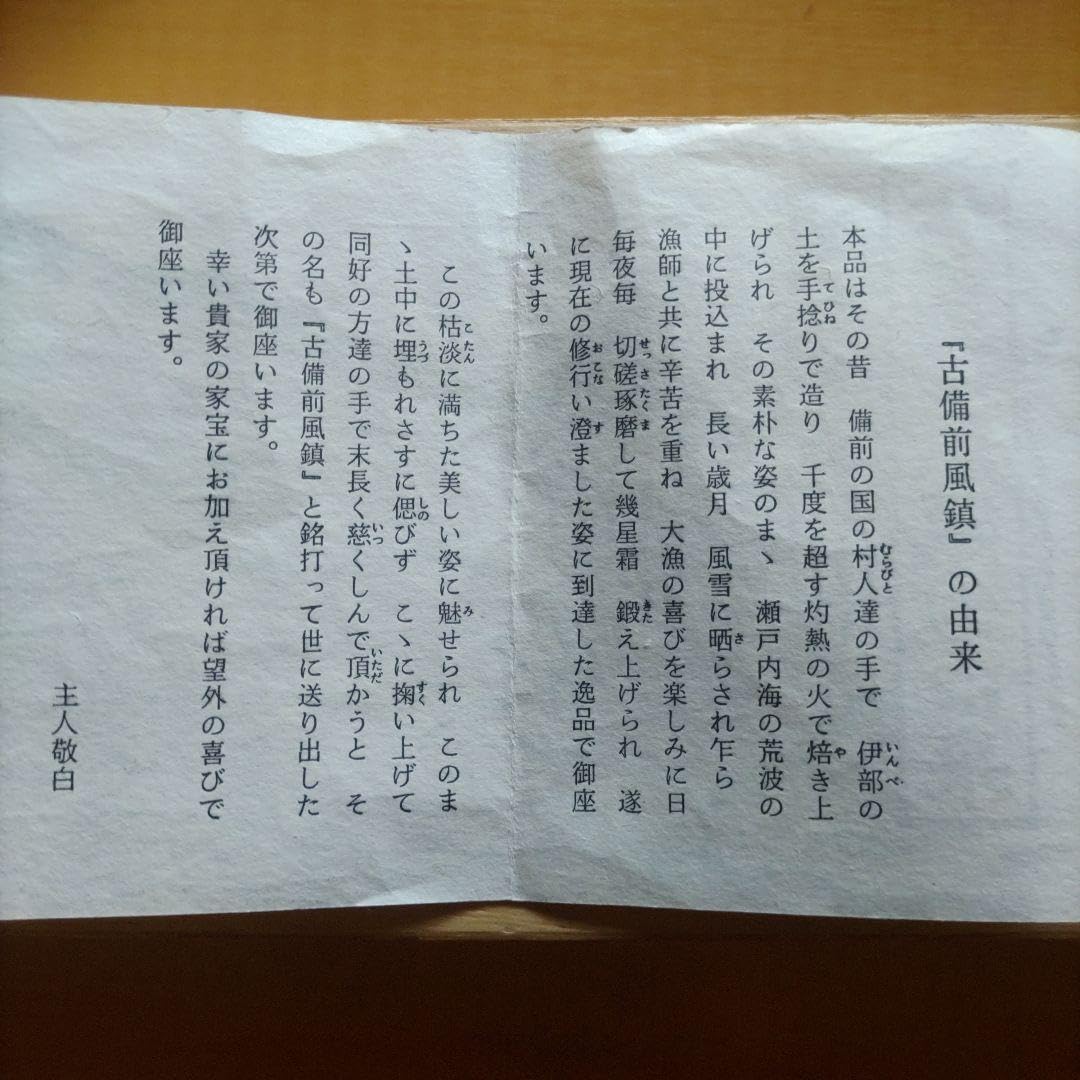 『古備前風鎮』の由来
本品はその昔　備前の国の村人達の手で　伊部の
土を手捻りで造り　千度を超す灼熱の火で焙き上
げられ　その素朴な姿のまゝ　瀬戸内海の荒波の
中に投込まれ　長い歳月　風雪に晒らされ乍ら
漁師と共に辛苦を重ね　大漁の喜びを楽しみに日
毎夜毎　切磋琢磨して幾星霜　鍛え上げられ　遂
に現在の修行い澄ました姿に到達した逸品で御座
います。
この枯淡に満ちた美しい姿に魅せられ　このま
ゝ土中に埋もれさすに偲びず　こゝに掬い上げて
同好の方達の手で末長く慈くしんで頂かうと　そ
の名も『古備前風鎮』と銘打って世に送り出した
次第で御座います。
幸い貴家の家宝にお加え頂ければ望外の喜びで
御座います。
主人敬白